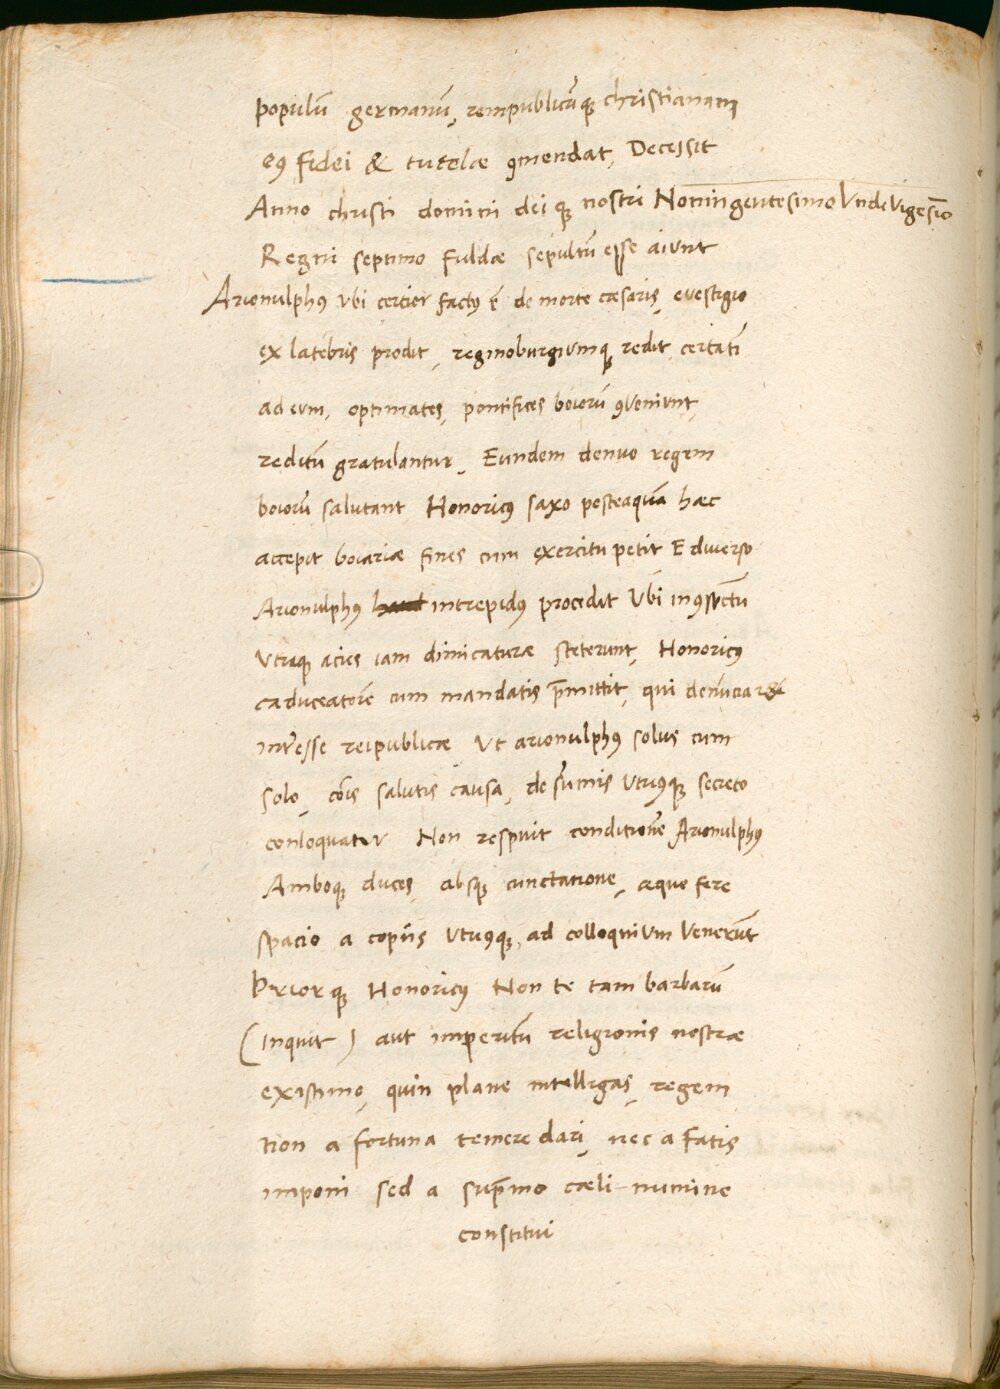 populū germanū, rempublicāqꝫ christianam
eꝰ fidei & tutelæ ꝯmendat, Decessit
Anno christi domini dei qꝫ nostri Noningentesimo Vndevigesīo
Regni septimo Fuldæ sepultū esse aiunt
Arionulphꝰ vbi certior factꝰ ē de morte cæsaris, evestigio
ex latebris prodit, reginoburgiumqꝫ redit, certatī
ad eum, optimates, pontifices boiorū ꝯveniunt,
reditū gratulantur, Eundem denuo regem
boiorū salutant Honoricꝰ saxo posteaquā hæc
accepit boiariæ fines cum exercitu petit E diverso
Arionulphꝰ haud intrepidꝰ procedit Vbi in ꝯspectū
Vtraqꝫ acies iam dimicaturæ steterunt, Honoricꝰ
caduceatorē cum mandatis p̄mittit, qui denūciaret
int̄esse reipublicæ Ut arionulphꝰ solus cum
solo, cōis salutis causa, de sūmis utriꝰqꝫ secreto
conloquatur Non respuit conditionē Arionulphꝰ
Amboqꝫ duces, absqꝫ cunctatione, æque fere
spacio a copiis utriꝰqꝫ, ad colloquium Venerūt
Priorqꝫ Honoricꝰ Non te tam barbarū
(inquit) aut imperitū religionis nostræ
existimo, quin plane intelligas, regem
non a fortuna temere dari, nec a fatis
imponi sed a sup̄mo cæli numine
constitui